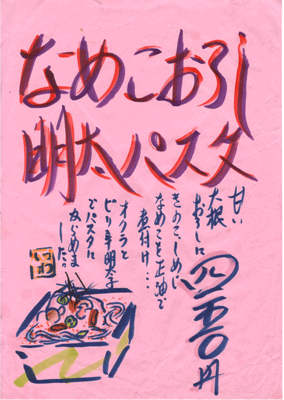 なめこおろし
明太パスタ
甘い
大根
おろしに
きのこ、しめじ
なめこを正油で
煮付け…
オクラと
ピリ辛明太子
でパスタに
からめま
した。
四五〇円